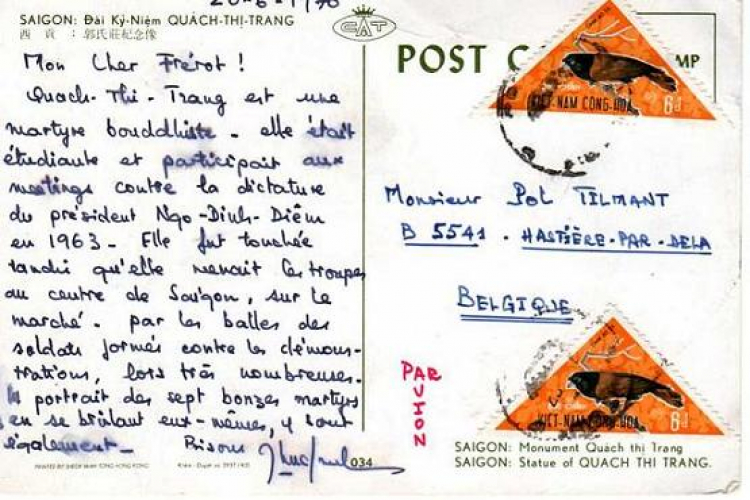 20-6-1970
SAIGON: Đài Kỷ-Niệm QUÁCH-THỊ-TRANG
西貢：郭氏莊紀念像
CAT
POST
MP
Mon Cher Frérot !
Quach-Thi-Trang est une
martyre bouddhiste - elle était
étudiante et participait aux
meetings contre la dictature
du président Ngo-Dinh-Diêm
en 1963 - Elle fut touchée
tandis qu'elle menait les troupes
au centre de Saïgon, sur le
marché - par les balles des
soldats formés contre les démons-
trations, lors très nombreuses.
portrait des sept bonzes martyrs
en se brûlant eux-mêmes, y sont
également - Bisous
VIET-NAM CONG-HOA 6đ
Monsieur Pol TILMANT
B 5541 - HASTIÈRE-PAR-DELA
BELGIQUE
PAR AVION
VIET-NAM CONG-HOA 6đ
034
SAIGON: Monument Quách thi Trang
SAIGON: Statue of QUACH THI TRANG.